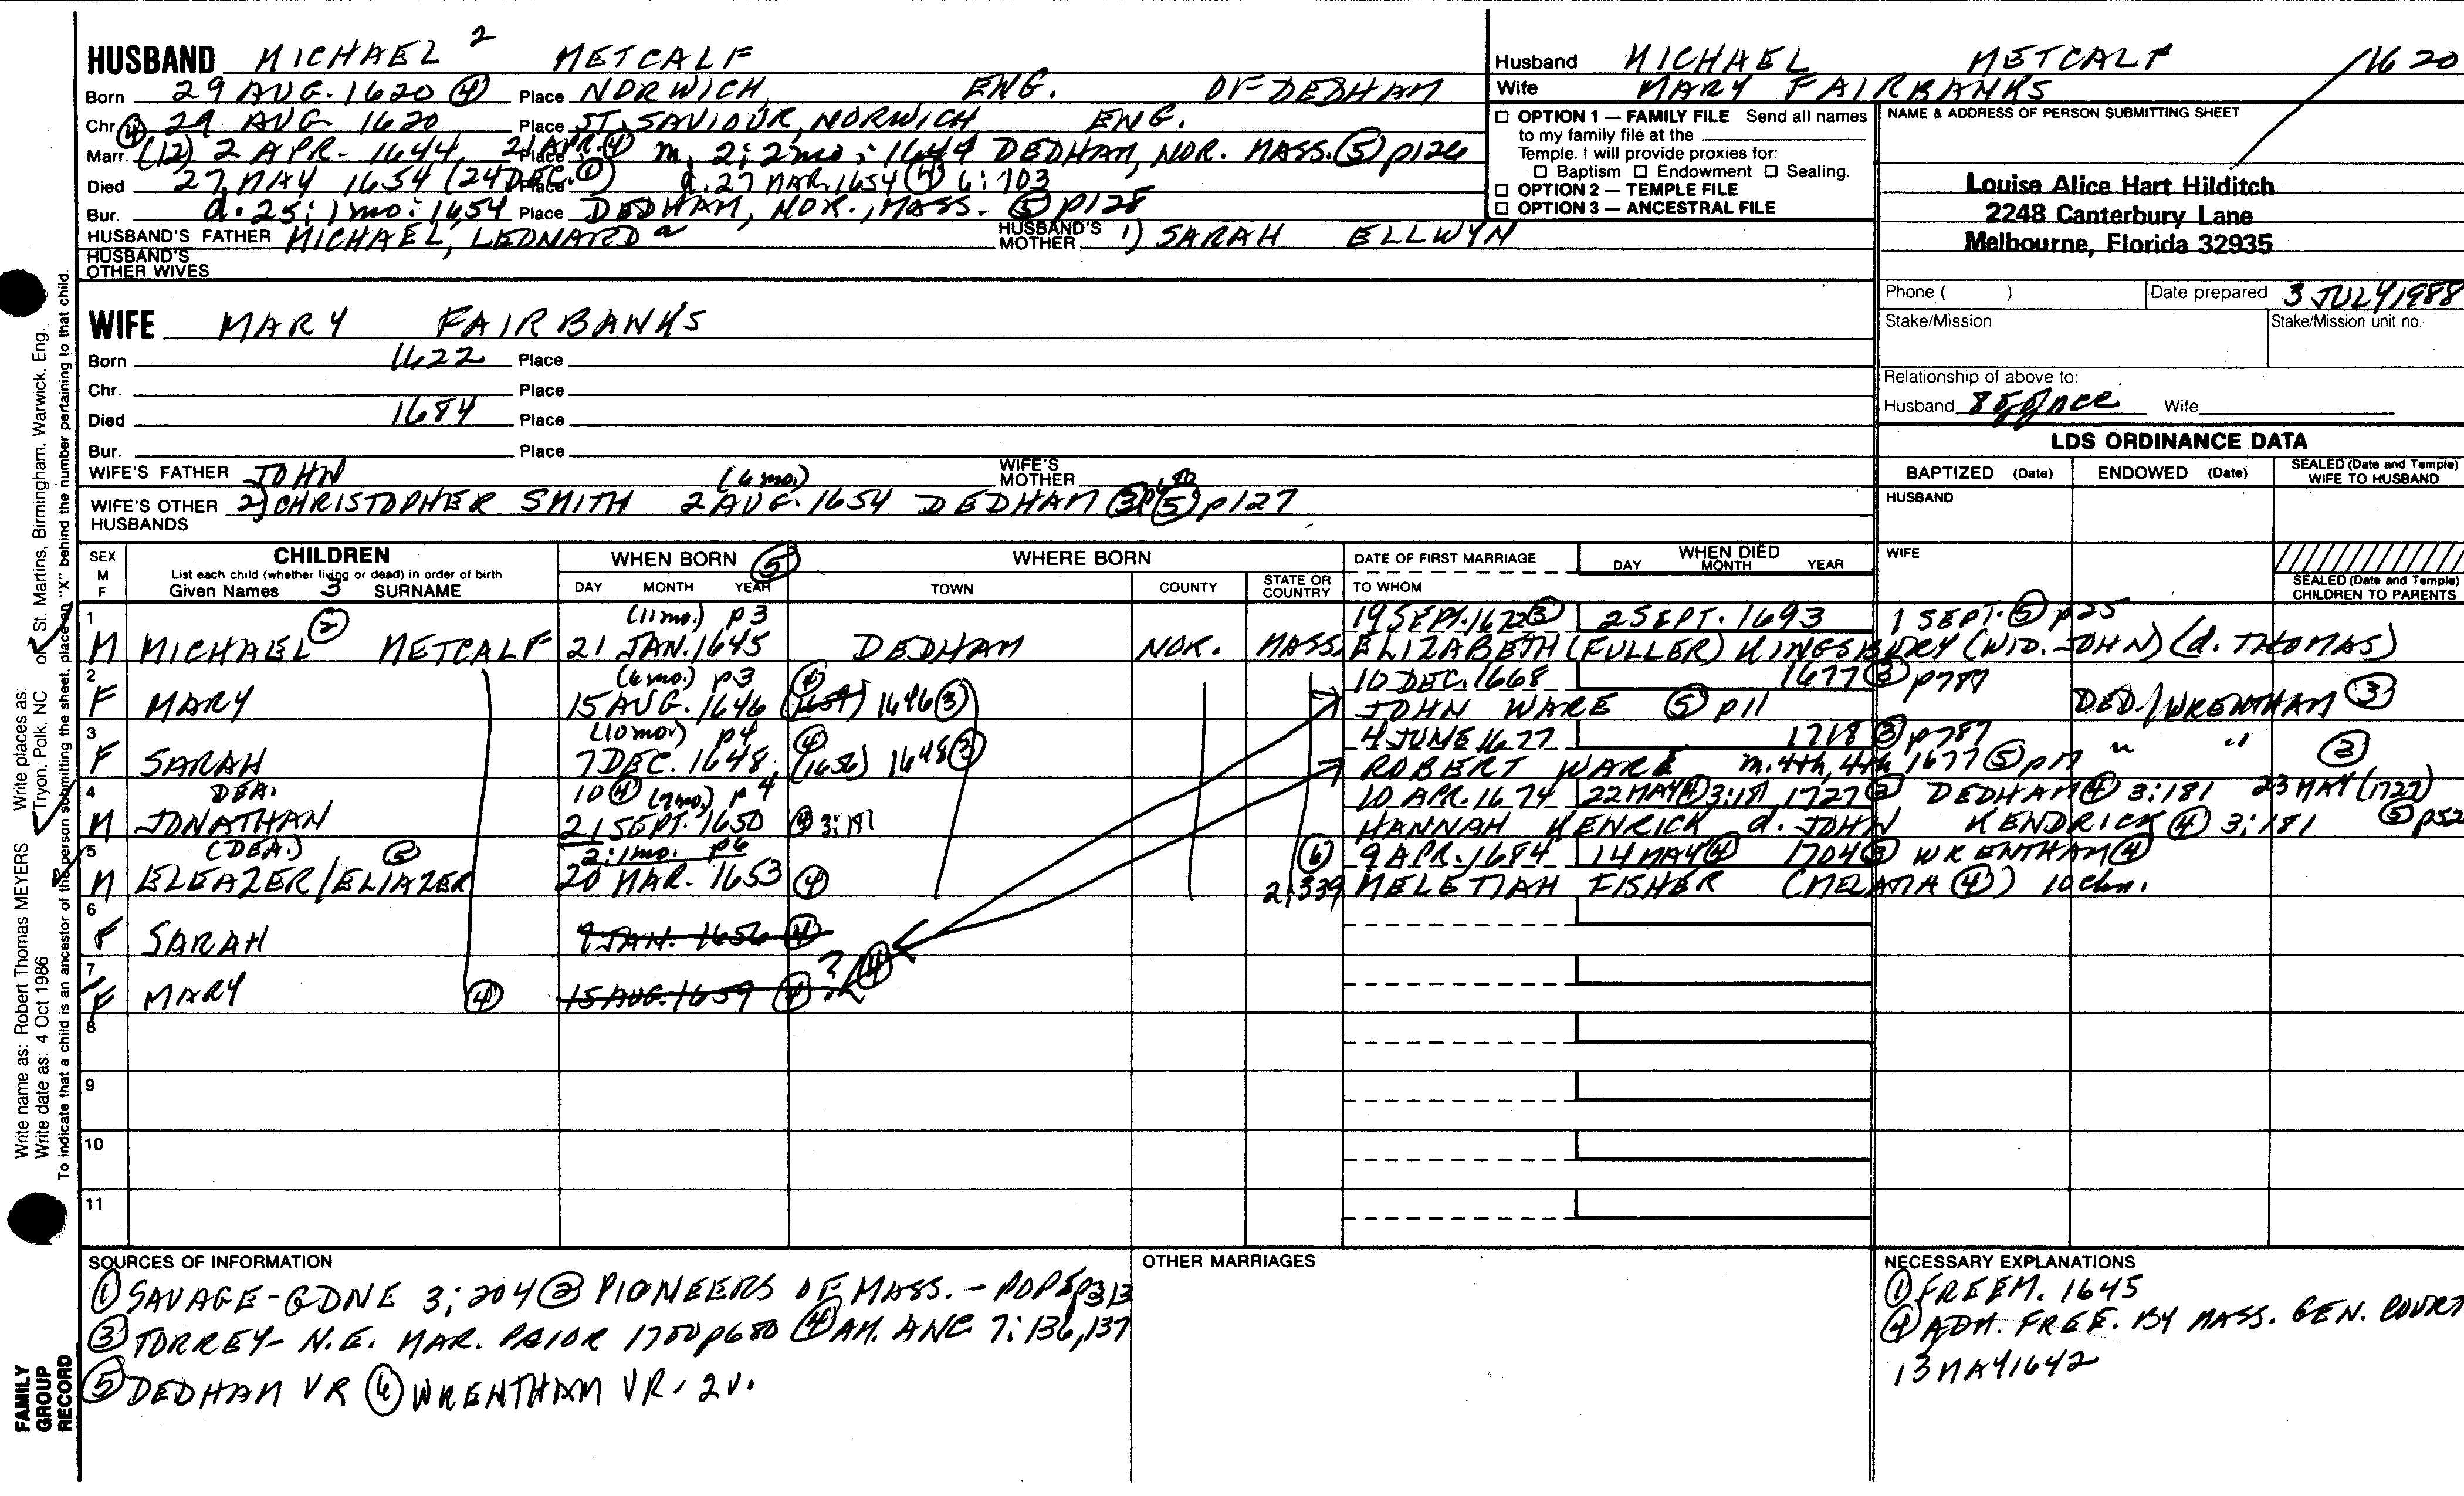 HUSBAND MICHAEL 2 METCALF
Born 29 AUG. 1620 (4) Place NORWICH, ENG. OF DEDHAM
Chr. (4) 29 AUG 1620 Place ST. SAVIOUR, NORWICH ENG.
Marr. (12) 2 APR. 1644, 21 APR. (4) Place m. 2: 2mo: 1644 DEDHAM, NOR. MASS. (5) p126
Died 27 MAY 1654 (24 DEC. (1)) Place d. 27 MAR. 1654 (4) 6:103
Bur. d. 25: 1mo: 1654 Place DEDHAM, NOR., MASS. (5) p128
HUSBAND'S FATHER MICHAEL, LEONARD a HUSBAND'S MOTHER 1) SARAH ELLWYN
HUSBAND'S OTHER WIVES
Husband MICHAEL METCALF 1620
Wife MARY FAIRBANKS
☐ OPTION 1 — FAMILY FILE Send all names
to my family file at the
Temple. I will provide proxies for:
☐ Baptism ☐ Endowment ☐ Sealing.
☐ OPTION 2 — TEMPLE FILE
☐ OPTION 3 — ANCESTRAL FILE
NAME & ADDRESS OF PERSON SUBMITTING SHEET
Louise Alice Hart Hilditch
2248 Canterbury Lane
Melbourne, Florida 32935
Phone ( ) Date prepared 3 JULY 1988
Stake/Mission Stake/Mission unit no.
Relationship of above to:
Husband 8 Wife
WIFE MARY FAIRBANKS
Born 1622 Place
Chr. Place
Died 1684 Place
Bur. Place
WIFE'S FATHER JOHN (6 mo.) WIFE'S MOTHER
WIFE'S OTHER HUSBANDS 2) CHRISTOPHER SMITH 2 AUG. 1654 DEDHAM (3) (5) p127
LDS ORDINANCE DATA
BAPTIZED (Date) ENDOWED (Date) SEALED (Date and Temple) WIFE TO HUSBAND
HUSBAND
WIFE
SEALED (Date and Temple) CHILDREN TO PARENTS
SEX M F
CHILDREN
List each child (whether living or dead) in order of birth
Given Names 3 SURNAME
WHEN BORN (5)
DAY MONTH YEAR
WHERE BORN
TOWN COUNTY STATE OR COUNTRY
DATE OF FIRST MARRIAGE
TO WHOM
WHEN DIED
DAY MONTH YEAR
1 (11 mo.) p3 19 SEPT. 1672 (3) 2 SEPT. 1693 1 SEPT. (5) p25
M MICHAEL (2) METCALF 21 JAN. 1645 DEDHAM NOR. MASS. ELIZABETH (FULLER) KINGSBURY (WID. JOHN) (d. THOMAS)
2 (6 mo.) p3 (4) 10 DEC. 1668 1677 (3) p787
F MARY 15 AUG. 1646 (1659) 1646 (3) JOHN WARE (5) p11 DED./WRENTHAM (3)
3 (10 mo.) p4 (4) 4 JUNE 1677 1718 (3) p787
F SARAH 7 DEC. 1648 (1656) 1648 (3) ROBERT WARE m. 4th, 4th 1677 (5) p17 " " (3)
4 DEA. 10 (4) (7 mo.) p4 10 APR. 1674 22 MAY (4) 3:181 1727 (3) DEDHAM (4) 3:181 23 MAY (1727)
M JONATHAN 21 SEPT. 1650 (4) 3:181 HANNAH KENRICK d. JOHN KENDRICK (4) 3:181 (5) p52
5 (DEA.) (5) 2: 1mo. p6 (6) 9 APR. 1684 14 MAY (4) 1704 (3) WRENTHAM (4)
M ELEAZER/ELIAZER 20 MAR. 1653 (4) 2:339 MELETIAH FISHER (MELATIA (4)) 10 chn.
6
F SARAH 9 JAN. 1656 (4)
7 ? (4)
F MARY (4) 15 AUG. 1659 (4)
8
9
10
11
SOURCES OF INFORMATION
(1) SAVAGE-GDNE 3:204 (2) PIONEERS OF MASS. - POPE p313
(3) TORREY- N.E. MAR. PRIOR 1700 p680 (4) AM. ANC 7:136,137
(5) DEDHAM VR (6) WRENTHAM VR. 2V.
OTHER MARRIAGES
NECESSARY EXPLANATIONS
(1) FREEM. 1645
(4) ADM. FREE. BY MASS. GEN. COURT
13 MAY 1642
Write name as: Robert Thomas MEYERS Write places as: Tryon, Polk, NC or St. Martins, Birmingham, Warwick, Eng.
Write date as: 4 Oct 1986
To indicate that a child is an ancestor of the person submitting the sheet, place an "X" behind the number pertaining to that child.
FAMILY
GROUP
RECORD